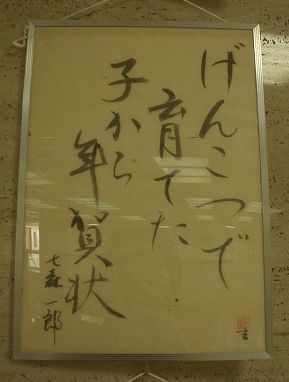 げんこつで
育てた
子から
年賀状
七森一郎